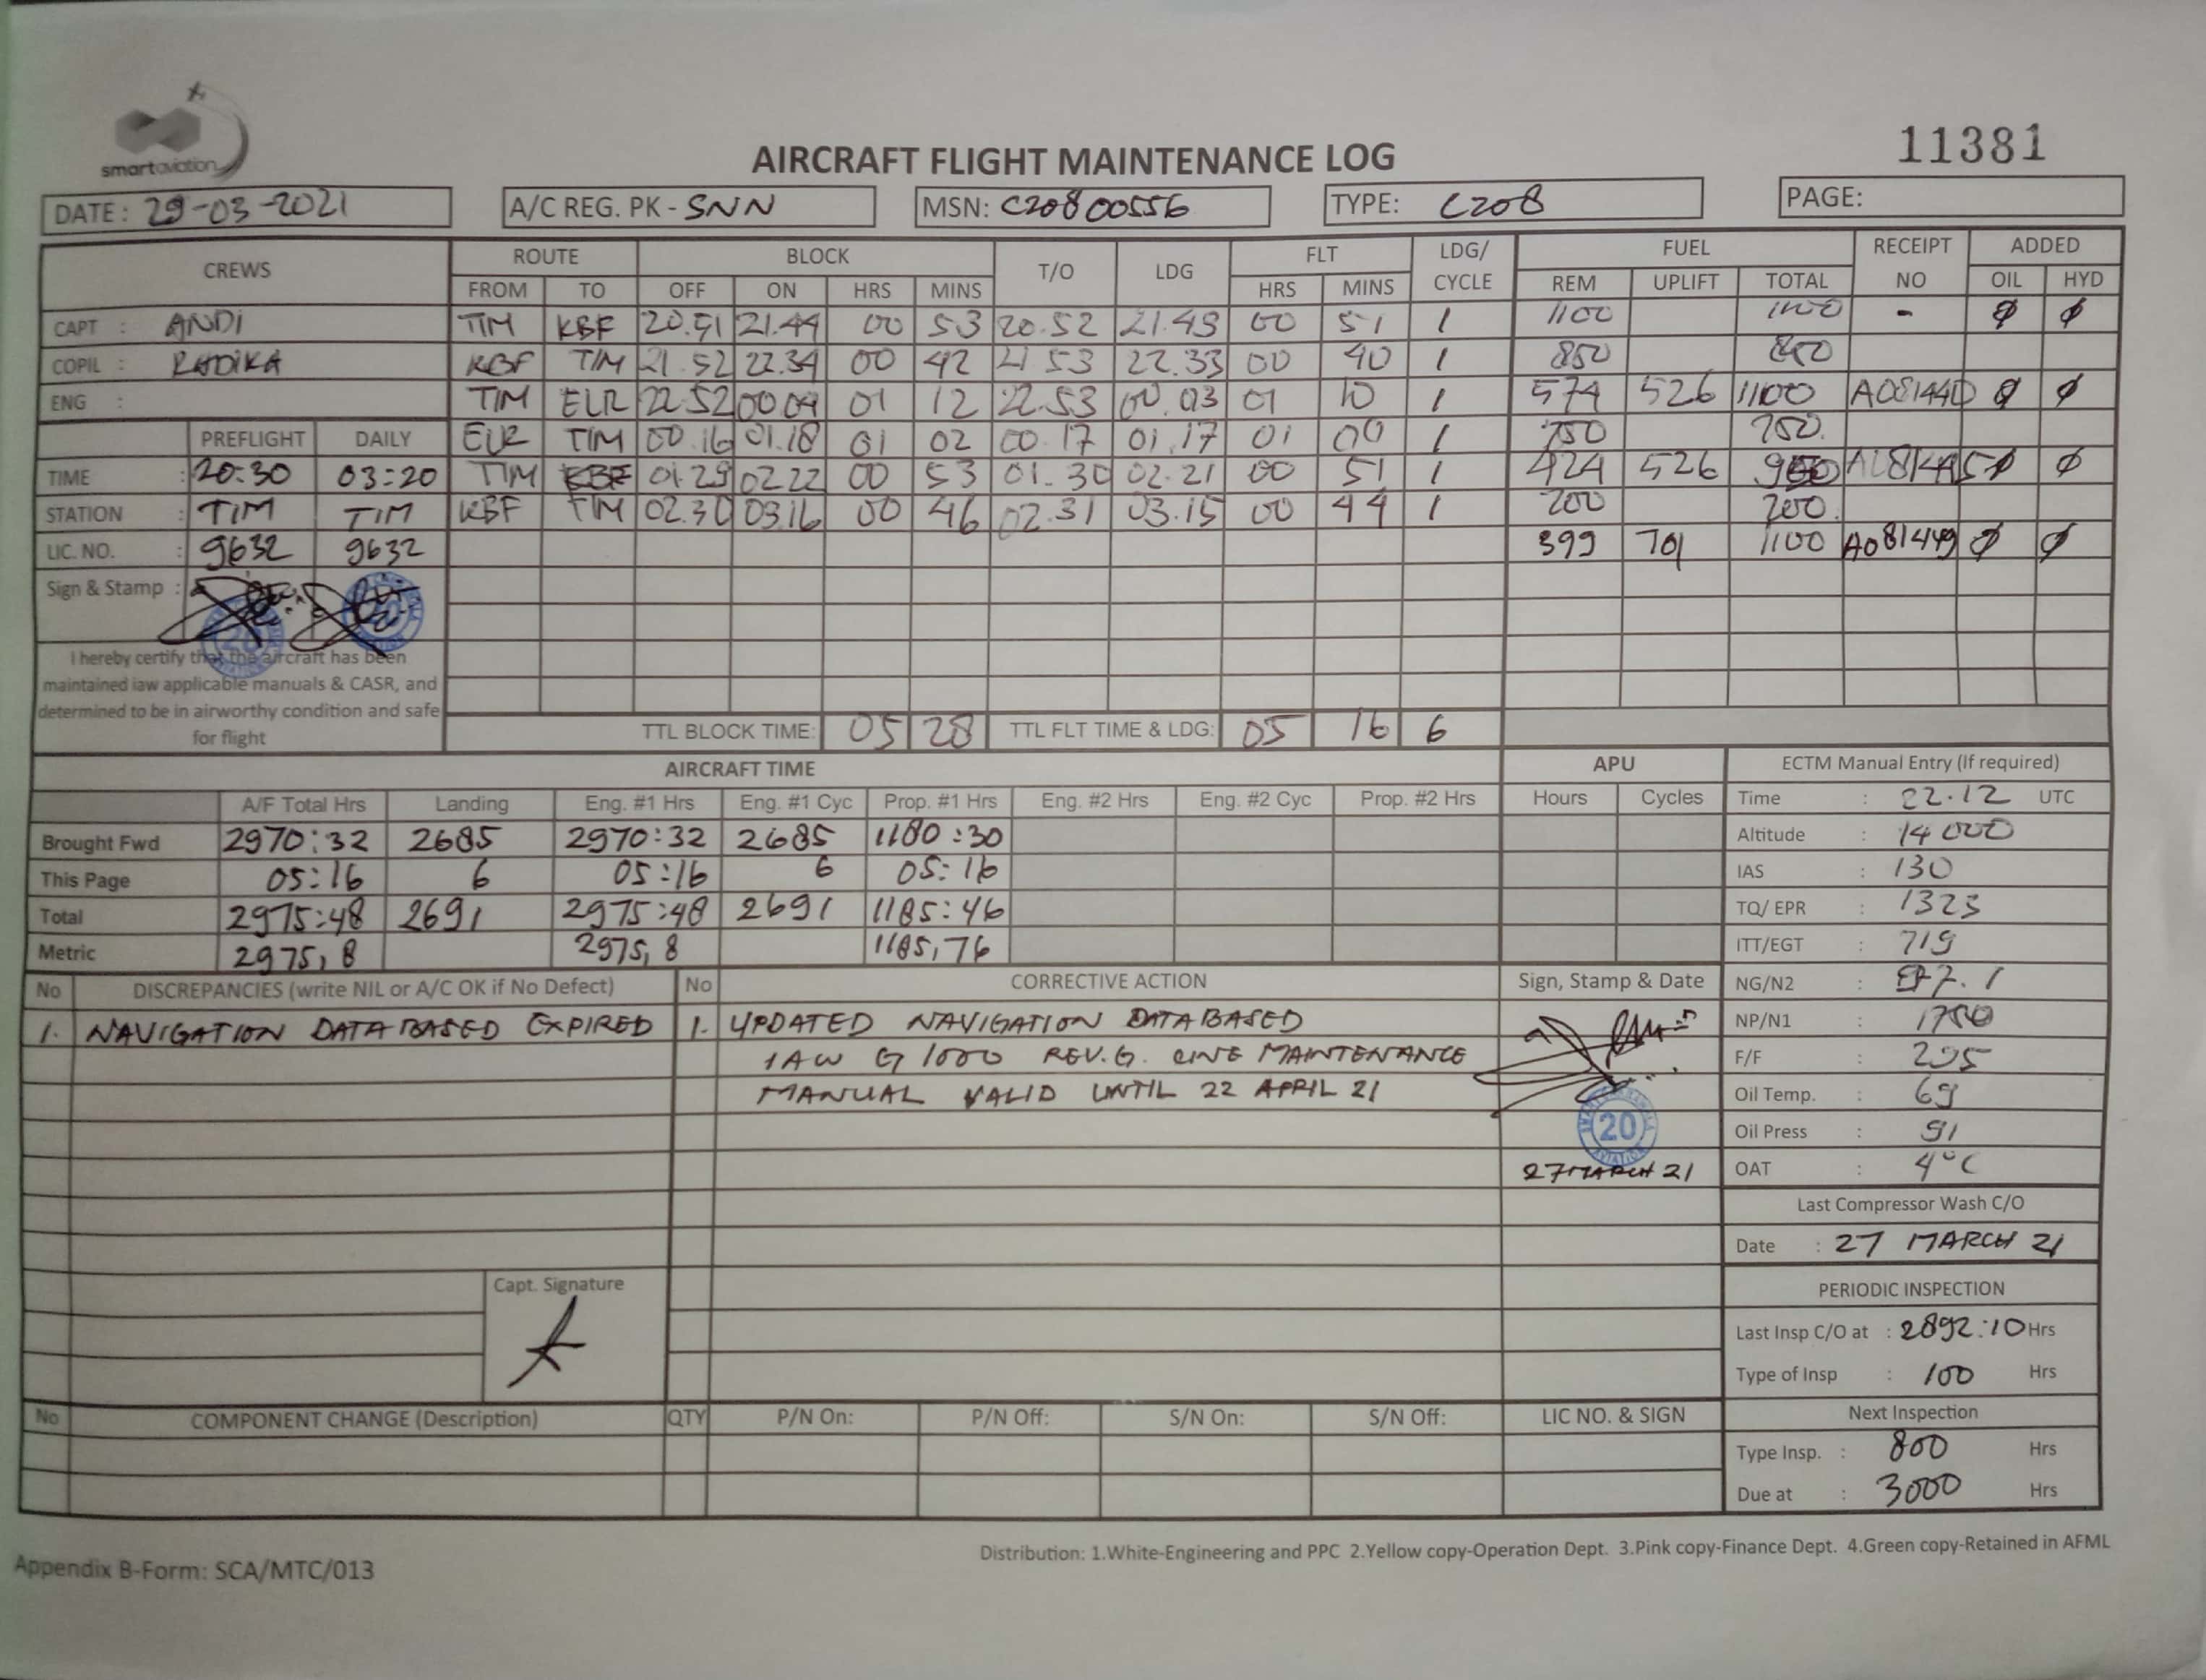 smartaviation
AIRCRAFT FLIGHT MAINTENANCE LOG
11381
DATE : 29-03-2021 A/C REG. PK - SNN MSN: C20800556 TYPE: C208 PAGE:
CREWS ROUTE BLOCK T/O LDG FLT LDG/ CYCLE FUEL RECEIPT NO ADDED
FROM TO OFF ON HRS MINS HRS MINS REM UPLIFT TOTAL OIL HYD
CAPT : ANDI TIM KBF 21.44 00 53 20.52 00 51 1 1100 1100 - Ø Ø
COPIL : RADIKA KBF TIM 21.52 22.34 00 42 21 53 22.33 00 40 1 850 850
ENG : TIM ELR 22.52 00.04 01 12 22.53 00.03 01 10 1 574 526 1100 A081440 Ø Ø
PREFLIGHT DAILY ELR TIM 00.16 01.18 01 02 00.17 01.17 01 00 1 750 750.
TIME : 20:30 03:20 TIM KBF 01.29 02.22 00 53 01.30 02.21 00 51 1 424 526 Ø Ø
STATION : TIM TIM KBF TIM 02.30 03.16 00 46 02.31 03.15 00 44 1 200 200.
LIC. NO. : 9632 9632 399 701 1100 A081449 Ø Ø
Sign & Stamp :
I hereby certify that the aircraft has been
maintained iaw applicable manuals & CASR, and
determined to be in airworthy condition and safe
for flight
TTL BLOCK TIME: 05 28 TTL FLT TIME & LDG: 05 16 6
AIRCRAFT TIME APU ECTM Manual Entry (If required)
A/F Total Hrs Landing Eng. #1 Hrs Eng. #1 Cyc Prop. #1 Hrs Eng. #2 Hrs Eng. #2 Cyc Prop. #2 Hrs Hours Cycles Time : 22.12 UTC
Brought Fwd 2970:32 2685 2970:32 2685 1180:30 Altitude : 14000
This Page 05:16 6 05:16 6 05:16 IAS : 130
Total 2975:48 2691 2975:48 2691 1185:46 TQ/ EPR : 1323
Metric 2975,8 2975,8 1185,76 ITT/EGT : 719
No DISCREPANCIES (write NIL or A/C OK if No Defect) No CORRECTIVE ACTION Sign, Stamp & Date NG/N2 :
1. NAVIGATION DATABASED EXPIRED 1. UPDATED NAVIGATION DATABASED NP/N1 : 1750
IAW G1000 REV.G. LINE MAINTENANCE F/F : 295
MANUAL VALID UNTIL 22 APRIL 21 Oil Temp. : 69
20
AVIATION
Oil Press : 91
27 MARCH 21 OAT : 4°C
Last Compressor Wash C/O
Date : 27 MARCH 21
Capt. Signature
PERIODIC INSPECTION
Last Insp C/O at : 2892:10 Hrs
Type of Insp : 100 Hrs
No COMPONENT CHANGE (Description) QTY P/N On: P/N Off: S/N On: S/N Off: LIC NO. & SIGN Next Inspection
Type Insp. : 800 Hrs
Due at : 3000 Hrs
Distribution: 1.White-Engineering and PPC 2.Yellow copy-Operation Dept. 3.Pink copy-Finance Dept. 4.Green copy-Retained in AFML
Appendix B-Form: SCA/MTC/013